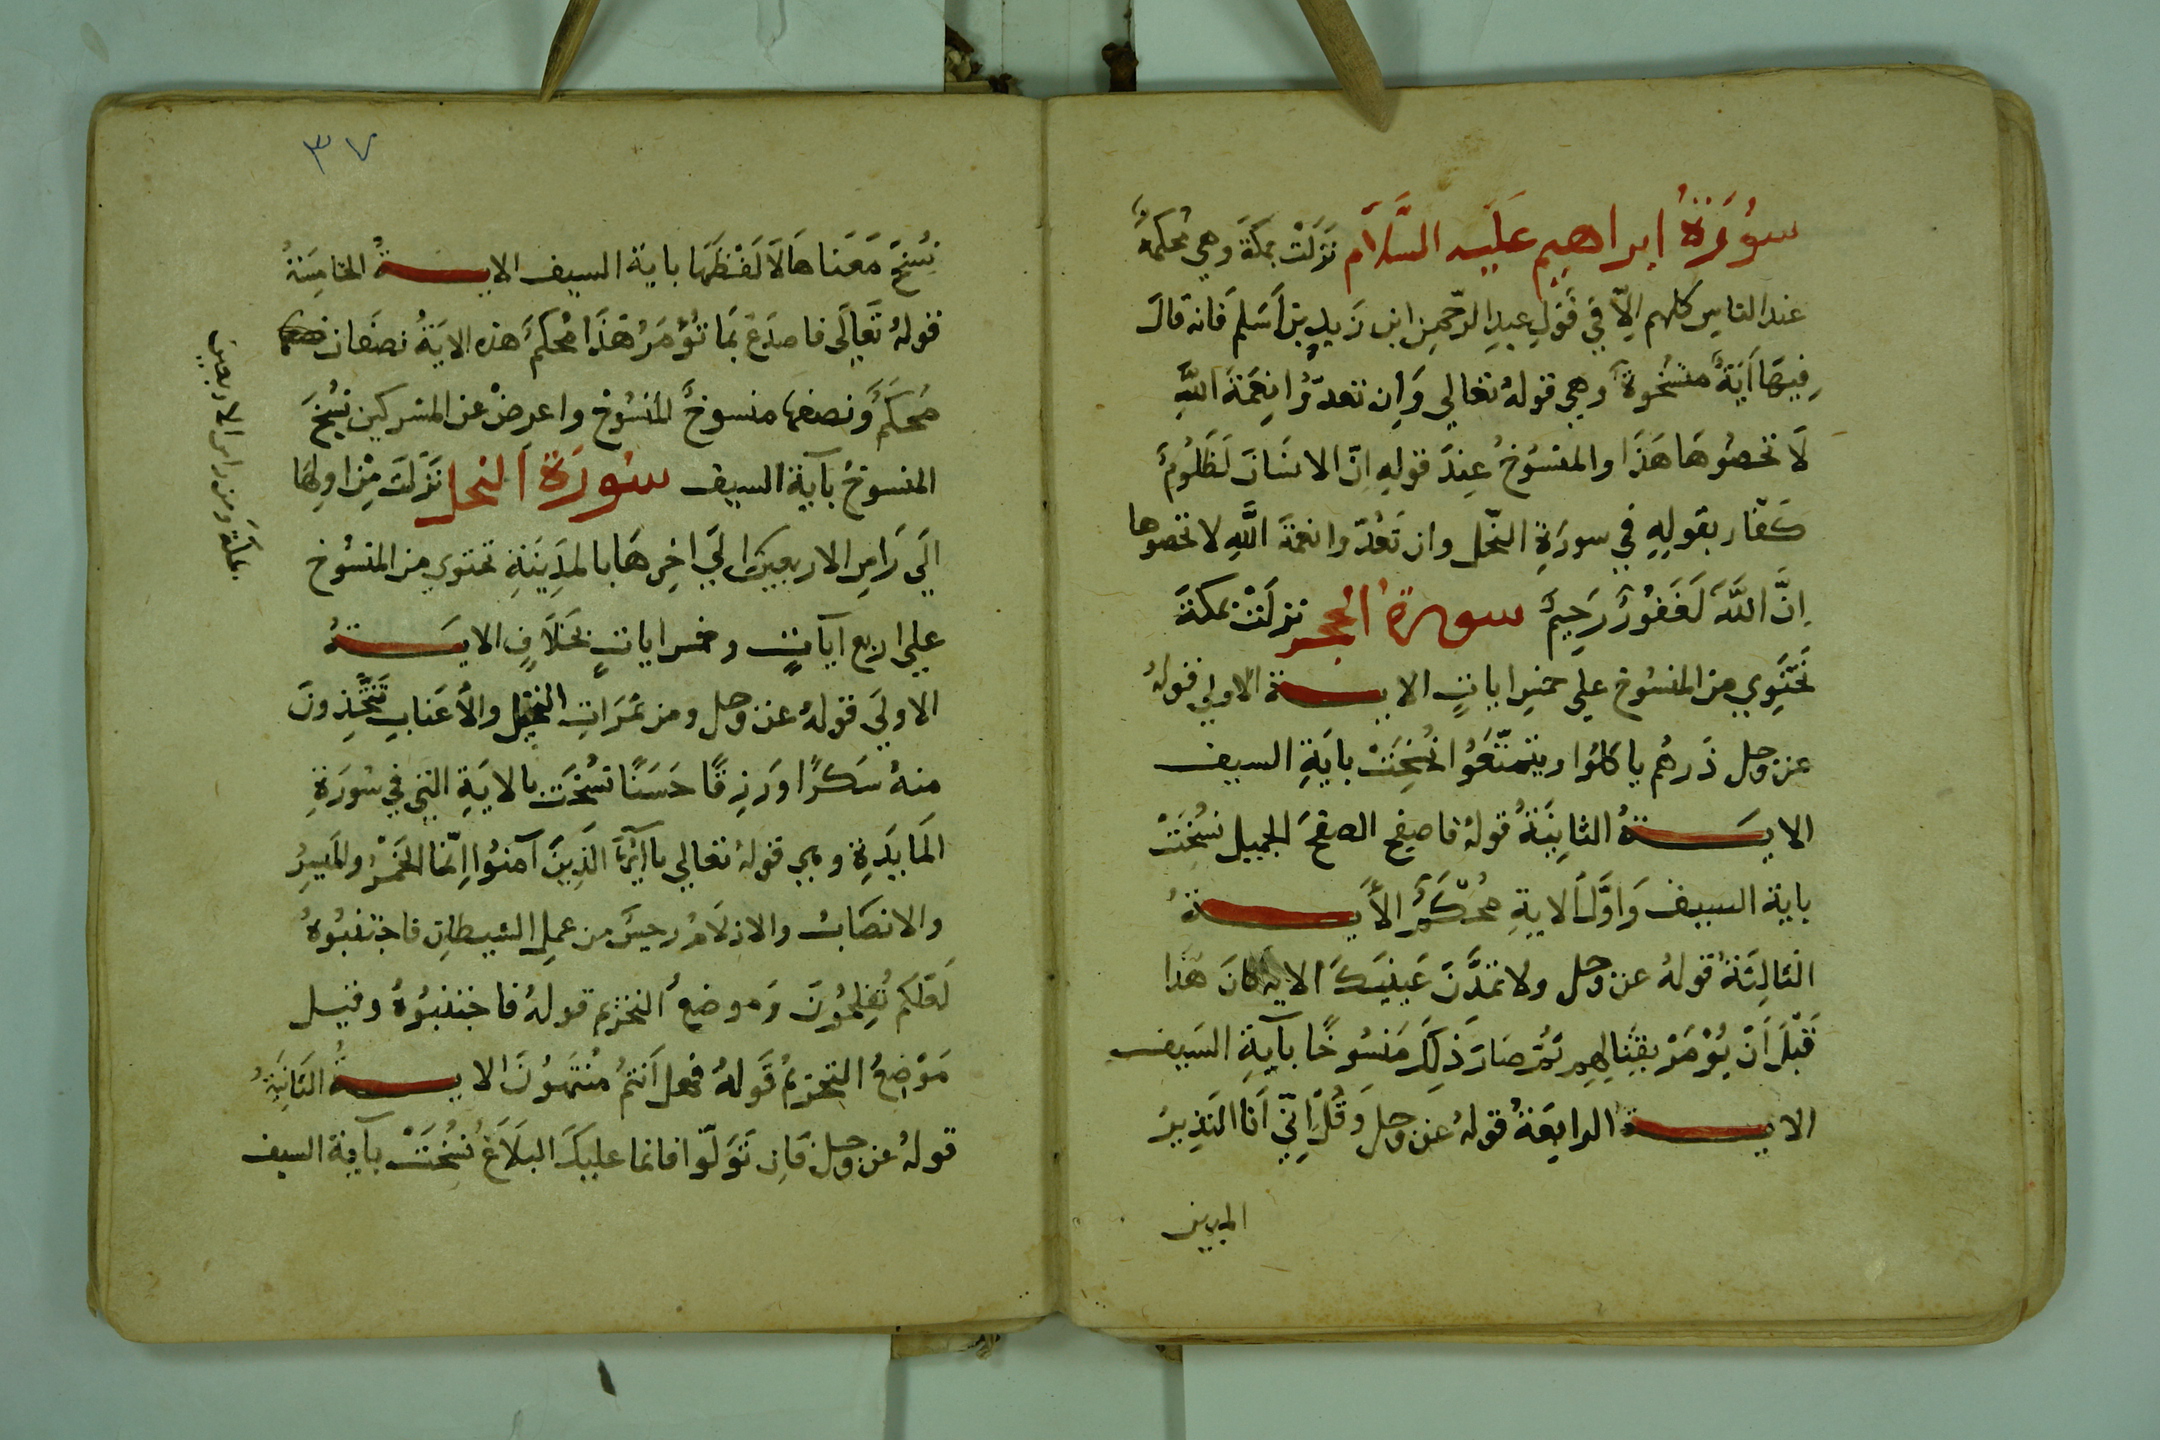 سُورَةُ إبراهيم عَلَيه السَّلَام نَزَلَتْ بمكَّةَ وهي مُحكمةٌ
عند الناسِ كلهم الّا في قَولِ عبدِ الرّحمنِ ابن زَيدِ بنِ أَسلمَ فَانه قالَ
فِيهَا آيَةٌ منسُخوةٌ وهي قولهُ تعالي وَاِن تعدّوُا نِعمَةَ اللَّهِ
لَا تحصُوهَا هَذَا والمنسُوخُ عِندَ قولهِ اِنّ الانسَانَ لَظَلُومٌ
كَفّار بقولِهِ في سورَةِ النّحل وان تَعُدّوا نعمَةَ اللَّهِ لا تحصوها
اِنَّ اللَّهَ لَغَفُورٌ رَحِيمٌ سورة الحجر نزلَتْ بمكة
تَحتَوِي من المنسُوخ علي خمسِ اياتٍ الايـــة الاولي قولهُ
عز وجل ذَرهُم ياكلوُا ويتمتّعَوُا نُسِخَتْ بايَةِ السيف
الايـــةُ الثانِيَةُ قولهُ فاصفح الصفحَ الجميل نسُخَتْ
باية السيف وَاَوَّل الايةِ مُحْكَمٌ الأَيـــةُ
الثالِثَةُ قولهُ عز وجل ولا تمدَّنَ عَينَيكَ الايه كانَ هَذا
قَبْلَ اَنْ يُؤْمَرْ بقِتَالِهِم ثُمّ صَارَ ذَلِكَ مَنسُوخًا بآيةِ السَيف
الايـــة الرابِعَةُ قولهُ عزوجل وَقُل اِنّي اَنا النَذِيرُ
المبين
٣٧
نُسِخَ مَعَناهَا لَا لَفْظهَا باية السيف الايـــةُ الخامِسَةُ
قولهُ تَعَالَى فاصدَعْ بمَا تُؤْمَرُ هَذَا مُحكمٌ هذه الايَةُ نصفَان
مُحكَمٌ ونصفها منسوخٌ المنسُوخُ واعرضْ عن المشركين نُسُخَ
المنسوخُ بآية السيف سُورَة النحل نَزَلَت مِنْ اولِهَا
الَي رَاسِ الاربعين الَي اخِرِهَا بالمدِينَةِ تحتوي من المنسُوخ
علي اربع آياتٍ وخمس اياتٍ بخلَافٍ الايَـــةُ
الاولَي قولهُ عزوجل ومن ثمَرَاتِ النخيل والأَعنَابِ تَتَّخِذونَ
منهُ سَكرًا وَرِزقًا حَسَنًا نسُخَت بالايَةِ التي في سُورَةِ
المَايَدَةِ وهي قولهُ تعالي يا اَيّهَا الَذِينَ آمنوُا اِنّما الخَمْرُ والمَيسِرُ
والانصَابُ والازلَامُ رجسٌ من عملِ الشيطانِ فاجتنبُوهُ
لَعَلكم تُفلِحُونَ وَموضِعُ التحريم قولهُ فاجتنبُوهُ وقيل
مَوْضِعُ التحريمُ قَولهُ فهل اَنتُم مُنتهونَ الايـــةُ الثانِيَةُ
قولهُ عزوجل فَاِن تَوَلّوْا فانما عليكَ البلَاغُ نُسُخَتْ بآية السيف
بمكة ومن راس الاربعين